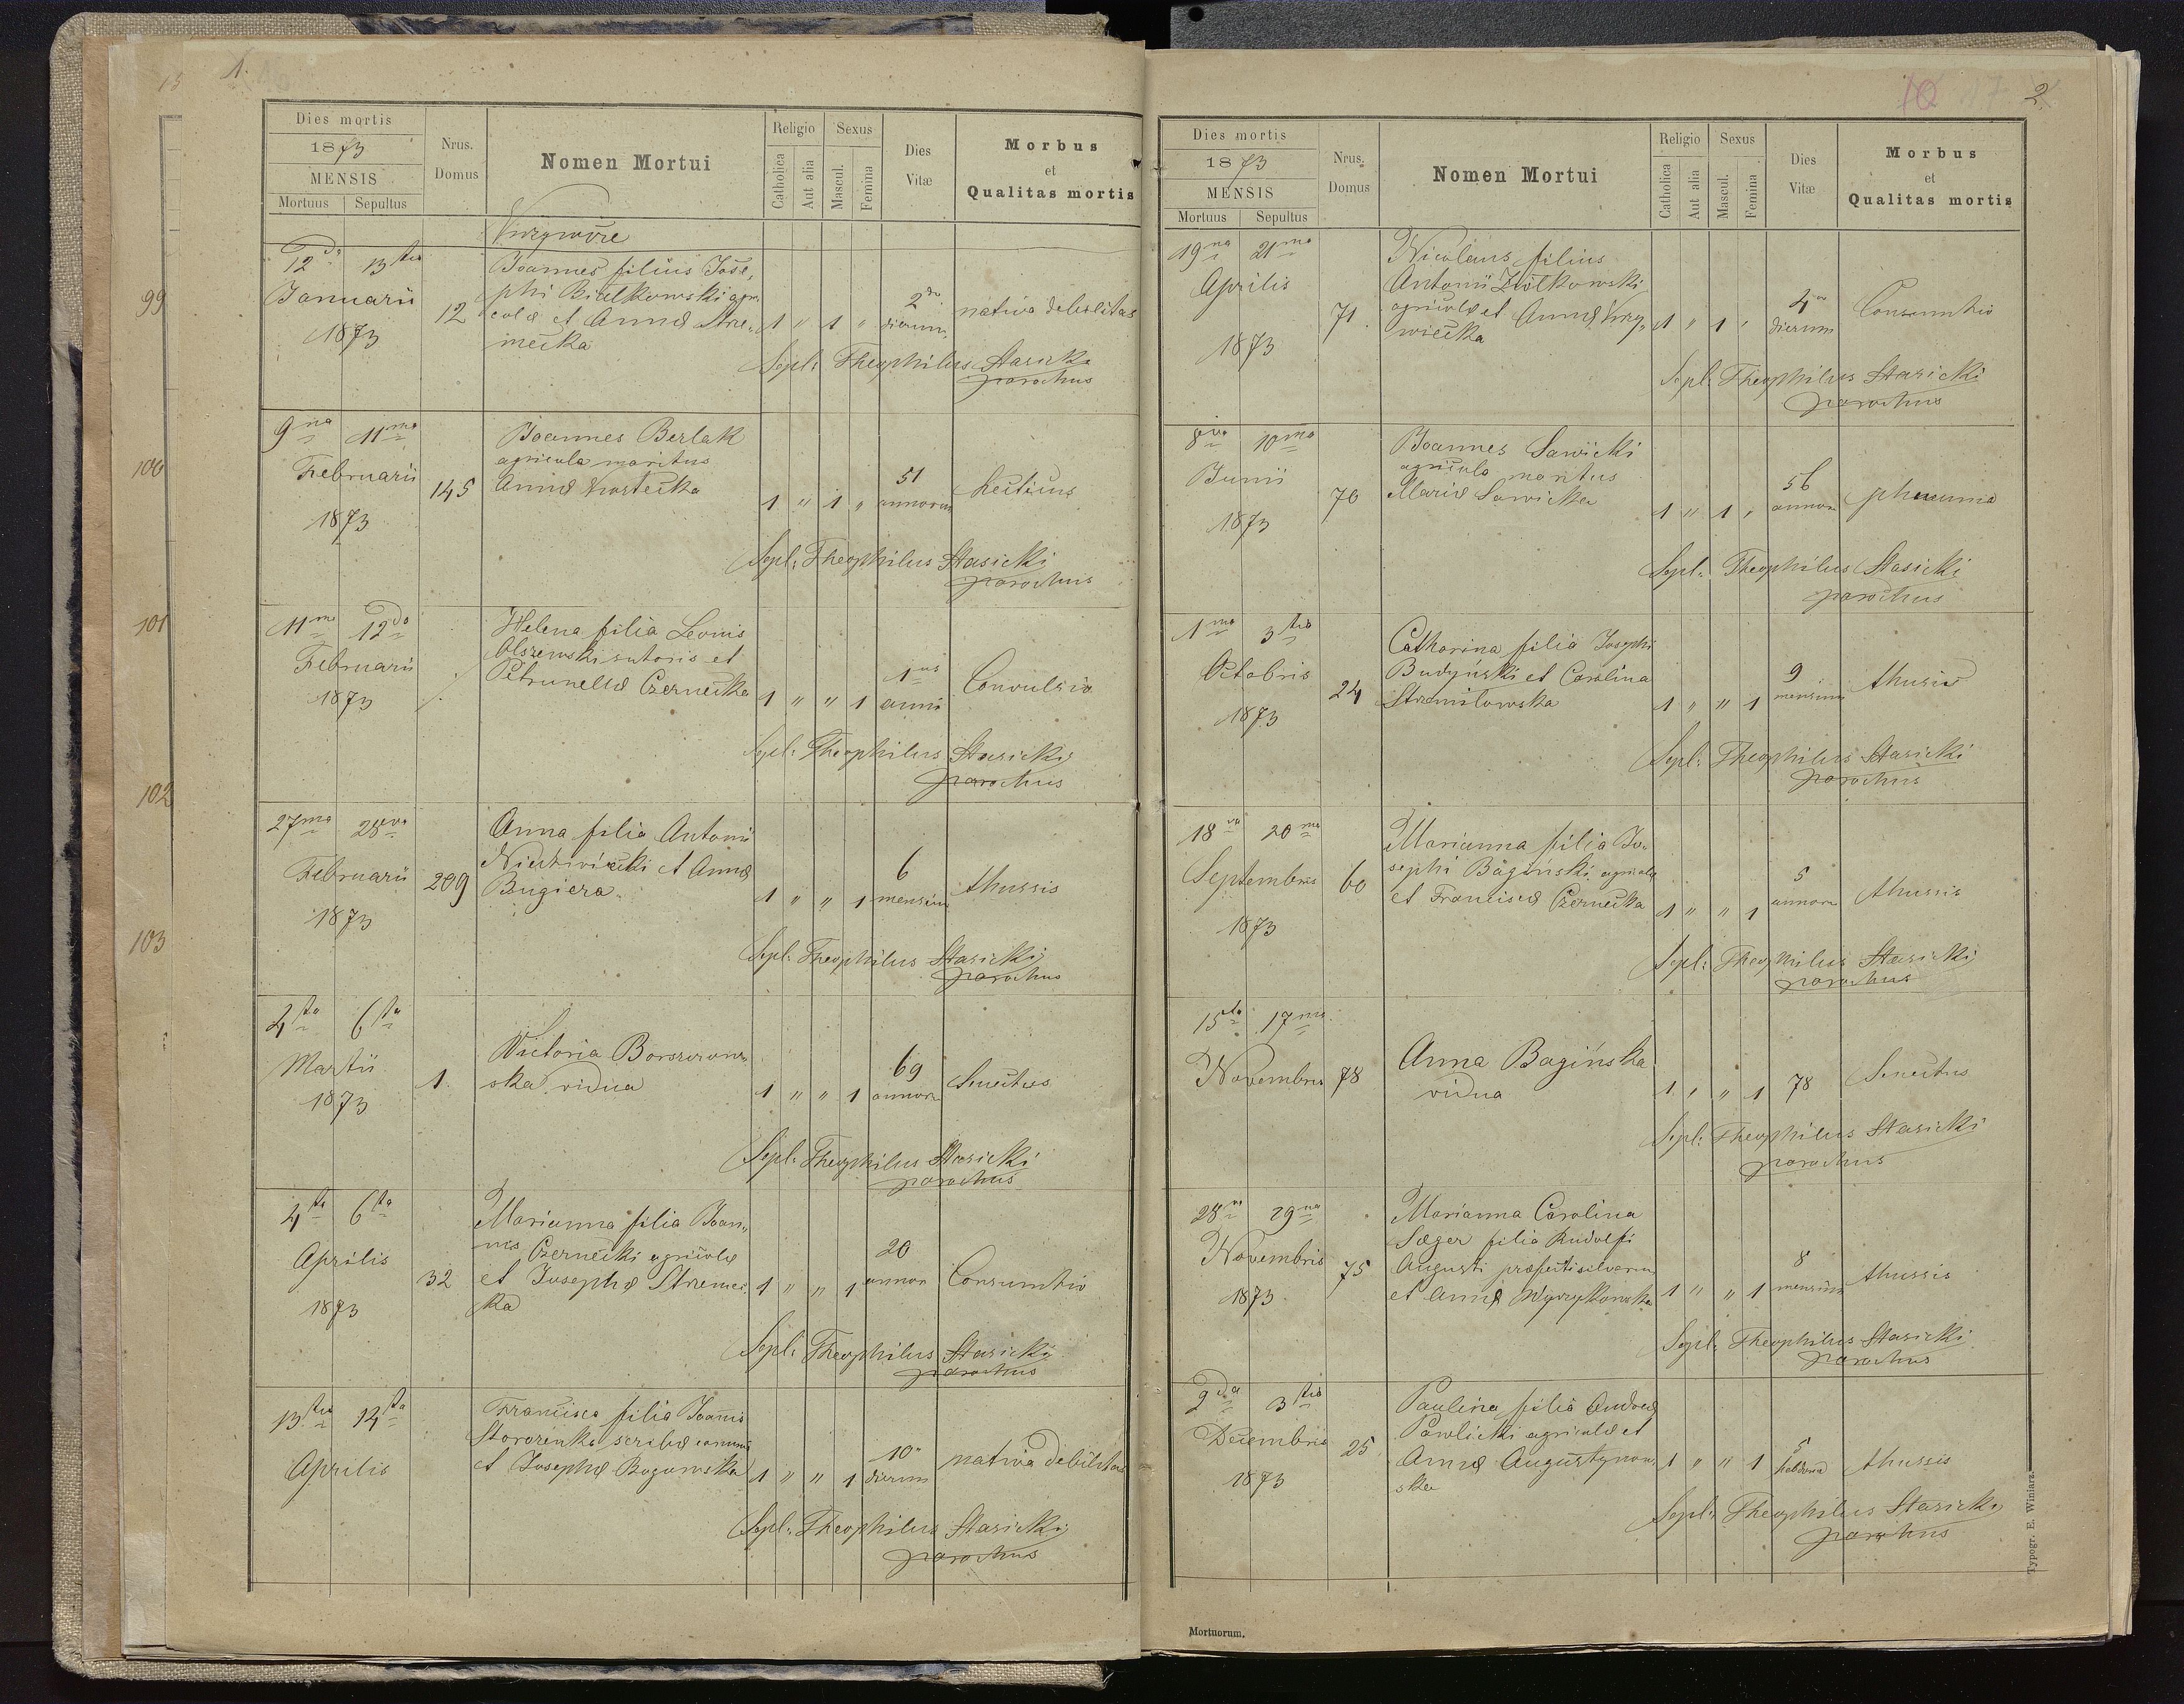 1.
Dies mortis
1873
MENSIS
Mortuus Sepultus
Nrus. Domus
Nomen Mortui
Religio
Catholica
Aut alia
Sexus
Mascul.
Femina
Dies Vitæ
Morbus
et
Qualitas mortis
99
12 13tia
Januarii
1873
12
Joannes filius Jose,
phi Bialkowski agri
colæ et Annæ Strze,
mecka
1 " 1 "
2
dierum
nativa debilitas
Sepl: Theophilus Stasicki
parochus
100
9na 11ma
Februarii
1873
145
Joannes Berlak
agricola maritus
Annæ
1 " 1 "
51
annorum
hecticus
Sepl: Theophilus Stasicki
parochus
101
11ma 12da
Februarii
1873
Helena filia Leonis
Olszewski sutoris et
Petrunellæ Czernecka
1 " " 1
1us
anni
Convulsio
Sepl: Theophilus Stasicki
parochus
102
27ma 28va
Februarii
1873
209
Anna filia Antonii
et Annæ
Bugiera
1 " " 1
6
mensium
thussis
Sepl: Theophilus Stasicki
parochus
103
4ta 6ta
Martii
1873
1.
Victoria Borszczow,
ska vidua
1 " " 1
69
annor
Senectus
Sepl: Theophilus Stasicki
parochus
4ta 6ta
Aprilis
1873
32
Marianna filia Joan,,
nis Czernecki agricolæ
et Josephæ Strzemec
ka
1 " " 1
20
annor
Consumtio
Sepl: Theophilus Stasicki
parochus
13tia 14ta
Aprilis
Francisca filia Joannis
Storozenko scribæ
et Josephæ Bogowska
1 " " 1
10
dierum
nativa debilitas
Sepl: Theophilus Stasicki
parochus
10 17 2
Dies mortis
1873
MENSIS
Mortuus Sepultus
Nrus. Domus
Nomen Mortui
Religio
Catholica
Aut alia
Sexus
Mascul.
Femina
Dies Vitæ
Morbus
et
Qualitas mortis
19na 21ma
Aprilis
1873
71.
Nicolaus filius
Antonii Ziółkowski
agricolæ et Annæ
1 " 1 "
4
dierum
Consumtio
Sepl: Theophilus Stasicki
parochus
8va 10ma
Junii
1873
70
Joannes Sawicki
agricola maritus
Mariæ Sawicka
1 " 1 "
56
annor
Sepl: Theophilus Stasicki
parochus
1ma 3tia
Octobris
1873
24
Catharina filia Josephi
Budyński et Carolina
Strzemiłowska
1 " " 1
9
mensium
thusis
Sepl: Theophilus Stasicki
parochus
18va 20ma
Septembris
1873
60
Marianna filia Jo,
sephi Bagiński agricolæ
et Franciscæ Czernecka
1 " " 1
5
annor
thussis
Sepl: Theophilus Stasicki
parochus
15ta 17ma
Novembris
78
Anna Bagińska
vidua
1 " " 1
78
Senectus
Sepl: Theophilus Stasicki
parochus
28va 29na
Novembris
1873
75
Marianna Carolina
Sæger filia Rudolfi
Augusti præfecti silvarum
et Annæ Wyrzykowska
1 " " 1
8
mensium
thussis
Sepl: Theophilus Stasicki
parochus
2da 3tia
Decembris
1873
25
Paulina filia Andreæ
Pawlicki agricolæ et
Annæ Augustynow
ska
1 " " 1
5
thussis
Sepl: Theophilus Stasicki
parochus
Typogr. E. Winiarz.
Mortuorum.